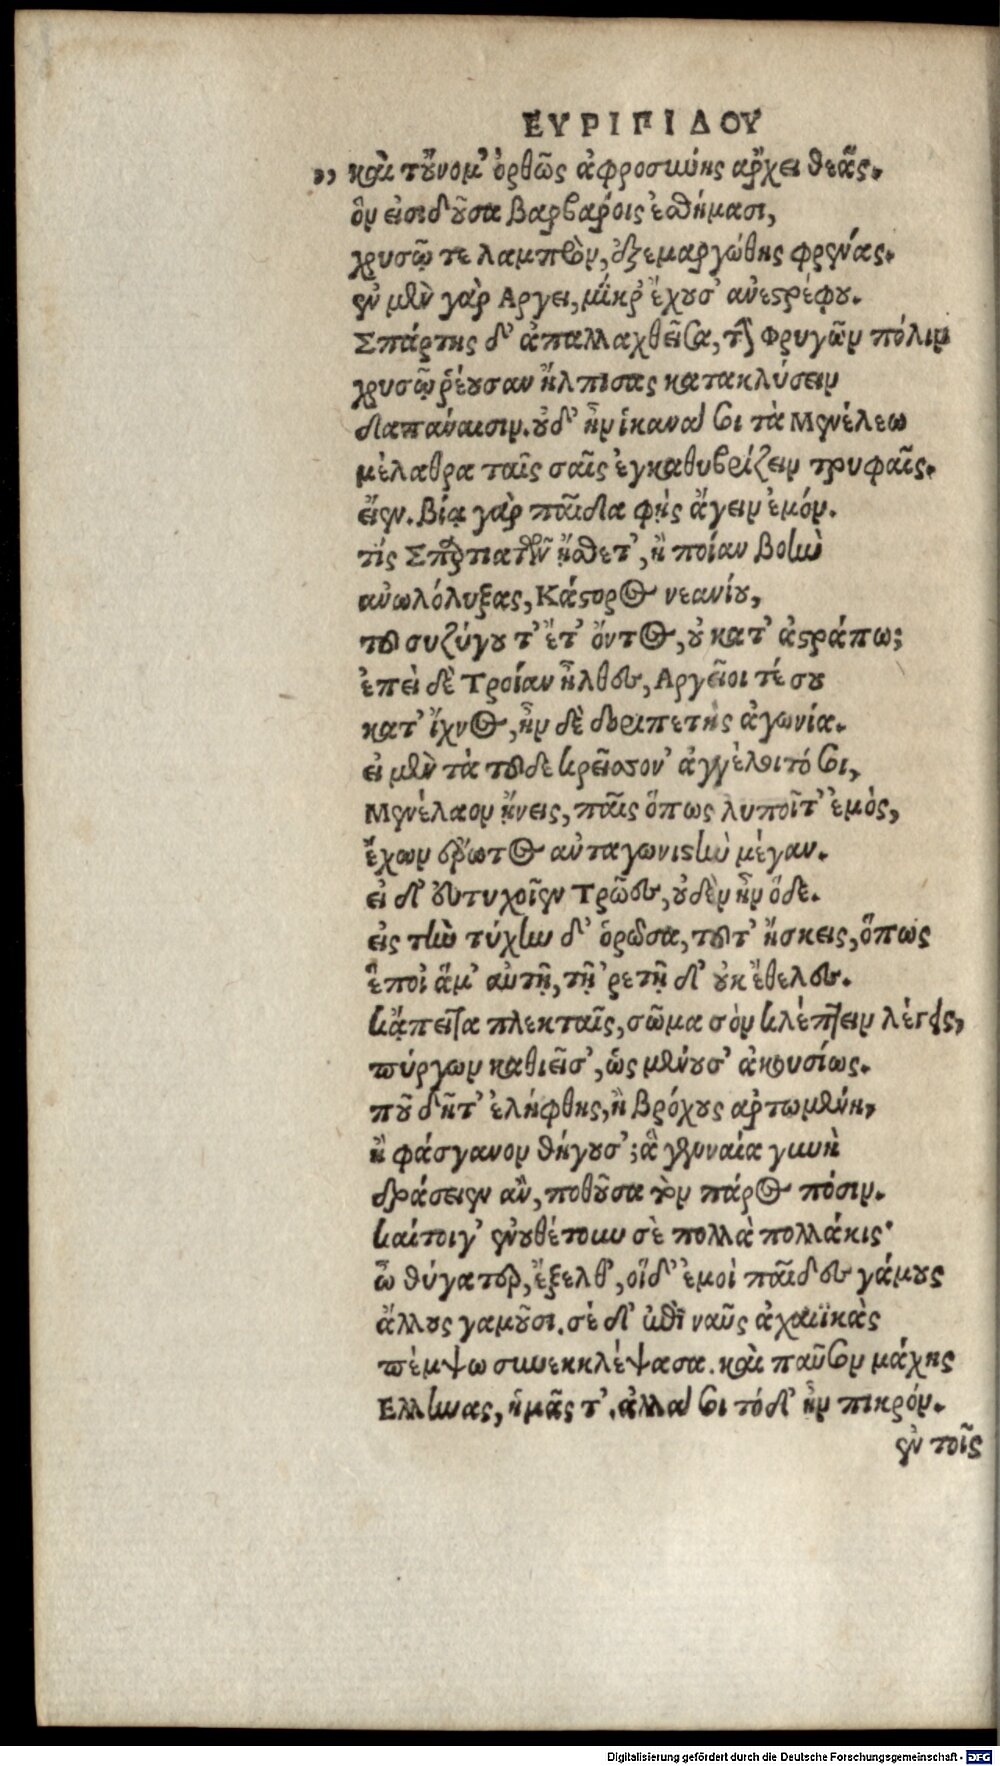 ΕΥΡΙΠΙΔΟΥ
,, καὶ τοὔνομ' ὀρθῶς ἀφροσύνης ἄρχει θεᾶς.
ὃν εἰσιδοῦσα βαρβάροις ἐσθήμασι,
χρυσῷ τε λαμπρὸν, ἐξεμαργώθης φρένας.
ἐν μὲν γὰρ Αργει, μίκρ' ἔχουσ' ἀνεστρέφου.
Σπάρτης δ' ἀπαλλαχθεῖσα, τὴν Φρυγῶν πόλιν
χρυσῷ ῥέουσαν ἤλπισας κατακλύσειν
δαπάναισιν. οὐδ' ἦν ἱκανά σοι τὰ Μενέλεω
μέλαθρα ταῖς σαῖς ἐγκαθυβρίζειν τρυφαῖς.
εἶεν. βίᾳ γὰρ παῖδα φῂς ἄγειν ἐμόν.
τίς Σπαρτιατῶν ᾔσθετ', ἢ ποίαν βοὴν
ἀνωλόλυξας, Κάστορος νεανίου,
τοῦ συζύγου τ' ἔτ' ὄντος, οὐ κατ' ἄστρά πω;
ἐπεὶ δὲ Τροίαν ἦλθες, Αργεῖοι τέ σου
κατ' ἴχνος, ἦν δὲ δοριπετὴς ἀγωνία.
εἰ μὲν τὰ τοῦδε κρεῖσσον' ἀγγέλοιτό σοι,
Μενέλαον ᾔνεις, παῖς ὅπως λυποῖτ' ἐμὸς,
ἔχων ἔρωτος ἀνταγωνιστὴν μέγαν.
εἰ δ' εὐτυχοῖεν Τρῶες, οὐδὲν ἦν ὅδε.
εἰς τὴν τύχην δ' ὁρῶσα, τοῦτ' ἤσκεις, ὅπως
ἕποι' ἅμ' αὐτῇ, τῇ 'ρετῇ δ' οὐκ ἔθελες.
κἄπειτα πλεκταῖς, σῶμα σὸν κλέπτειν λέγεις,
πύργων καθιεῖσ', ὡς μένουσ' ἀκουσίως.
ποῦ δῆτ' ἐλήφθης, ἢ βρόχους ἀρτωμένη,
ἢ φάσγανον θήγουσ'; ἃ γενναία γυνὴ
δράσειεν ἂν, ποθοῦσα τὸν πάρος πόσιν.
καίτοιγ' ἐνουθέτουν σὲ πολλὰ πολλάκις·
ὦ θύγατερ, ἔξελθ', οἵδ' ἐμοὶ παῖδες γάμους
ἄλλους γαμοῦσι. σέ δ' ἐπὶ ναῦς ἀχαιϊκὰς
πέμψω συνεκκλέψασα. καὶ παῦσον μάχης
Ελληνας, ἡμᾶς τ'. ἀλλά σοι τόδ' ἦν πικρόν.
ἐν τοῖς
Digitalisierung gefördert durch die Deutsche Forschungsgemeinschaft - DFG